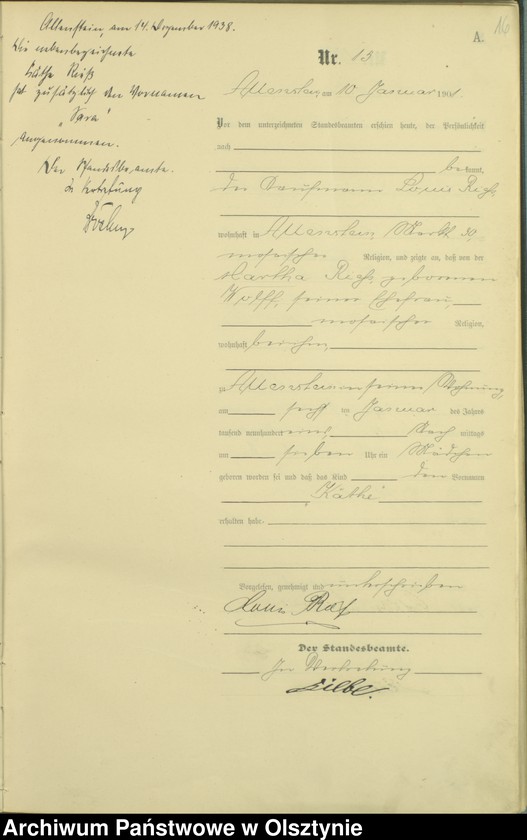 Allenstein, am 14. Dezember 1938.
Die nebenbezeichnete
Käthe Reiß
hat zusätzlich den Vornamen
„Sara“
angenommen.
Der Standesbeamte.
In Vertretung
16
A.
Nr. 15
Allenstein am 10 Januar 1901.
Vor dem unterzeichneten Standesbeamten erschien heute, der Persönlichkeit
nach
bekannt,
der Kaufmann Louis
wohnhaft in Allenstein, Markt 30,
mosaischer Religion, und zeigte an, daß von der
Martha geborenen
Wolff, seiner Ehefrau,
mosaischer Religion,
wohnhaft bei ihm,
zu Allenstein in seiner Wohnung,
am sechs ten Januar des Jahres
tausend neunhundert eins, Nach mittags
um sieben Uhr ein Mädchen
geboren worden sei und daß das Kind den Vornamen
Käthe
erhalten habe.
Vorgelesen, genehmigt und unterschrieben
Louis
Der Standesbeamte.
In Vertretung
Archiwum Państwowe w Olsztynie